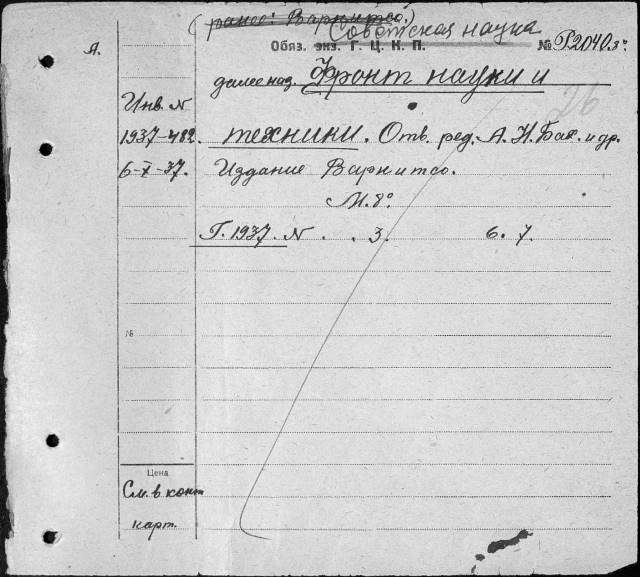 (ранее: Варнитсо.)
Советская наука
Обяз. экз. Г. Ц. К. П. № P2040.
А.
далее наз. Фронт науки и
26
Инв. N
1937-482. техники. Отв. ред. А. Н. Бах. и др.
6-X-37. Издание Варнитсо.
М. 8°
Г. 1937. N . . 3. 6. 7.
№
Цена
См. в конт
карт.